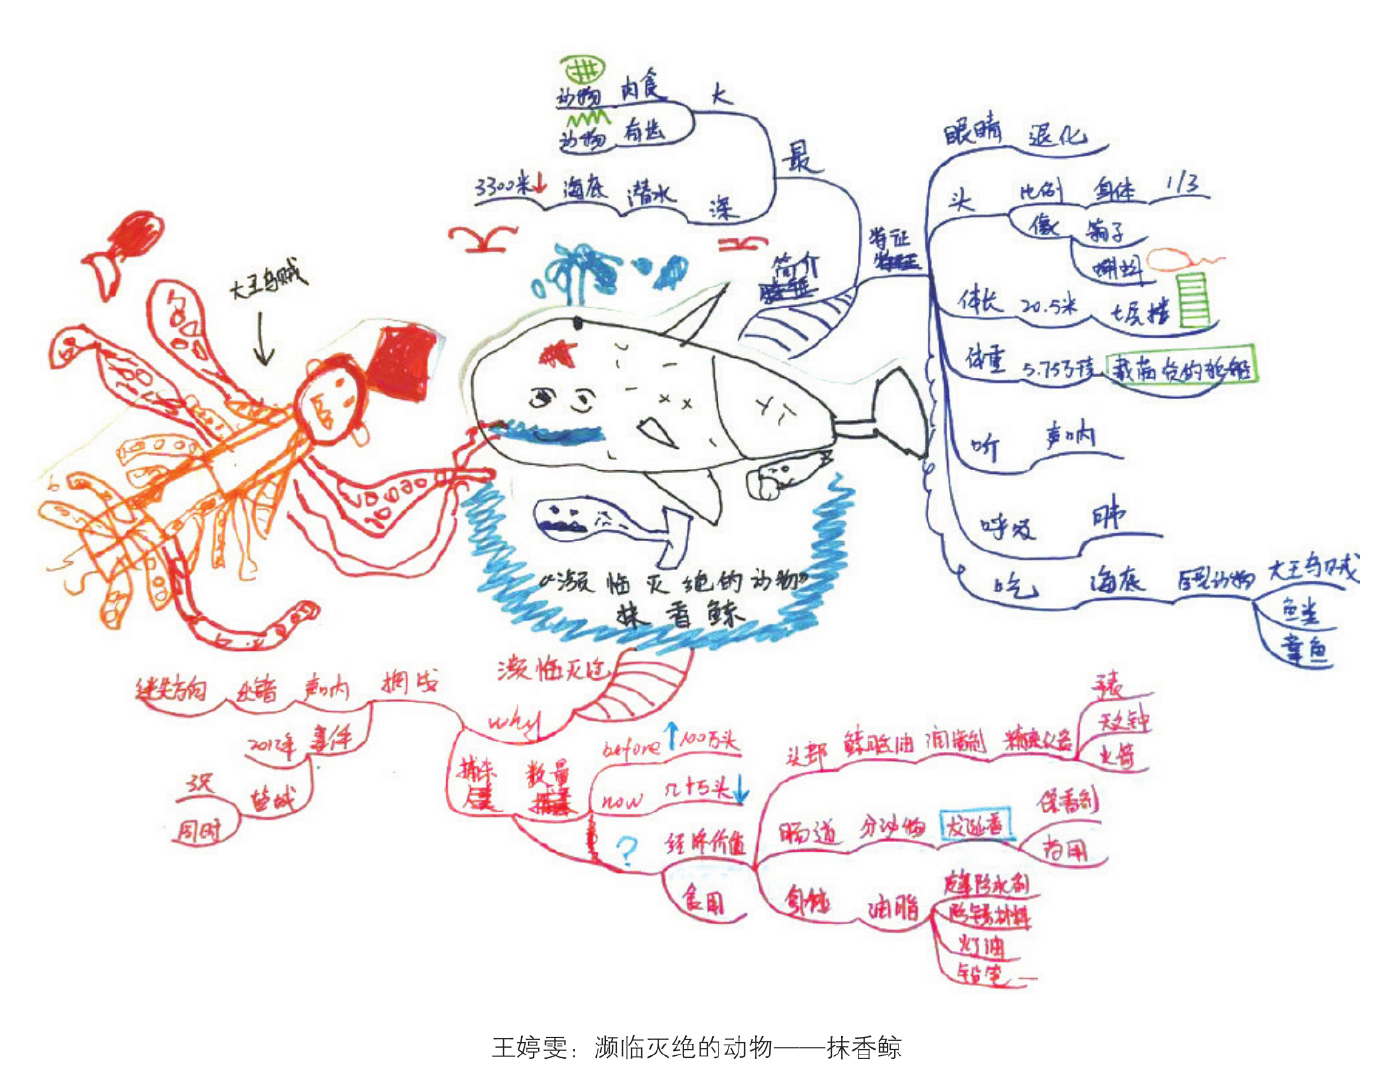 动物 肉食 大
动物 有齿
最
3300米 海底 潜水 深
简介
特征
眼睛 退化
头 比例 身体 1/3
像 筒子
蝌蚪
体长 20.5米 七层楼
体重 5.75万 载满货的轮船
听 声呐
呼吸 肺
吃 海底 巨型动物 大王乌贼
鱼类
章鱼
大王乌贼
“濒临灭绝的动物”
抹香鲸
濒临灭绝
why
迷失方向 声呐 搁浅
2012年 事件
盐城
3只
同时
捕杀 数量
before 100万头
now 几十万头
? 经济价值
食用
头部 鲸脑油 润滑剂 精密仪器
手表
天文钟
火箭
肠道 分泌物 龙涎香
保香剂
药用
油脂
皮革防水剂
防锈材料
灯油
铅笔
王婷雯：濒临灭绝的动物——抹香鲸